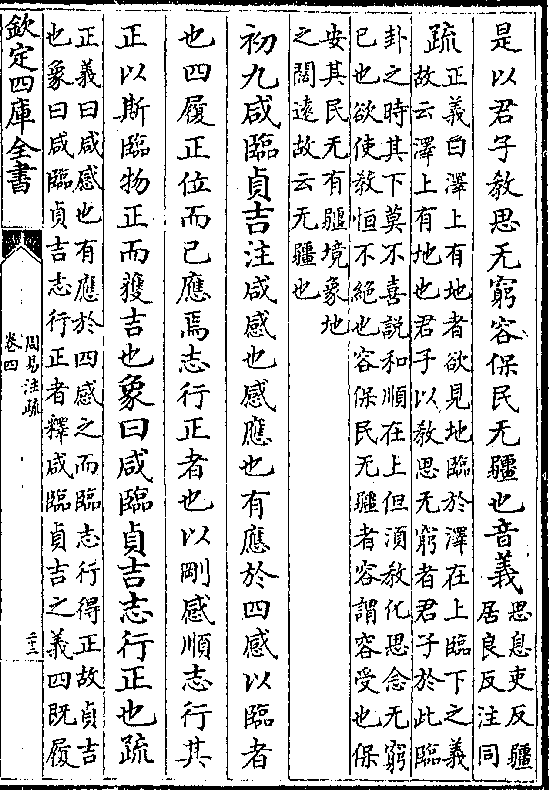 是以君子教思无窮容保民无疆也音義
思息吏反疆
居良反注同
疏
正義曰澤上有地者欲見地臨於澤在上臨下之義
故云澤上有地也君子以教思无窮者君子於此臨
卦之時其下莫不喜說和順在上但須教化思念无窮
已也欲使教恒不絕也容保民无疆者容謂容受也保
安其民无有疆境象地
之闊遠故云无疆也
初九咸臨貞吉注咸感也感應也有應於四感以臨者
也四履正位而已應焉志行正者也以剛感順志行其
正以斯臨物正而獲吉也象曰咸臨貞吉志行正也疏
正義曰咸感也有應於四感之而臨志行得正故貞吉
也象曰咸臨貞吉志行正者釋咸臨貞吉之義四既履
欽定四庫全書
周易注疏
卷四
二十三